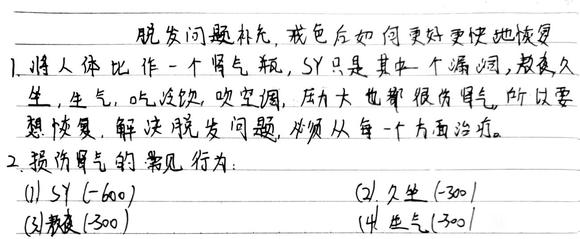 脱发问题补充,戒色后如何更好更快地恢复
1. 将人体比作一个肾气瓶,SY只是其中一个漏洞,熬夜久
坐,生气,吃冷饮,吹空调,压力大也都很伤肾气,所以要
想恢复,解决脱发问题,必须从每一个方面治疗。
2. 损伤肾气的常见行为:
(1) SY (-600) (2) 久坐 (-300)
(3) 熬夜 (-300) (4) 生气 (-300)